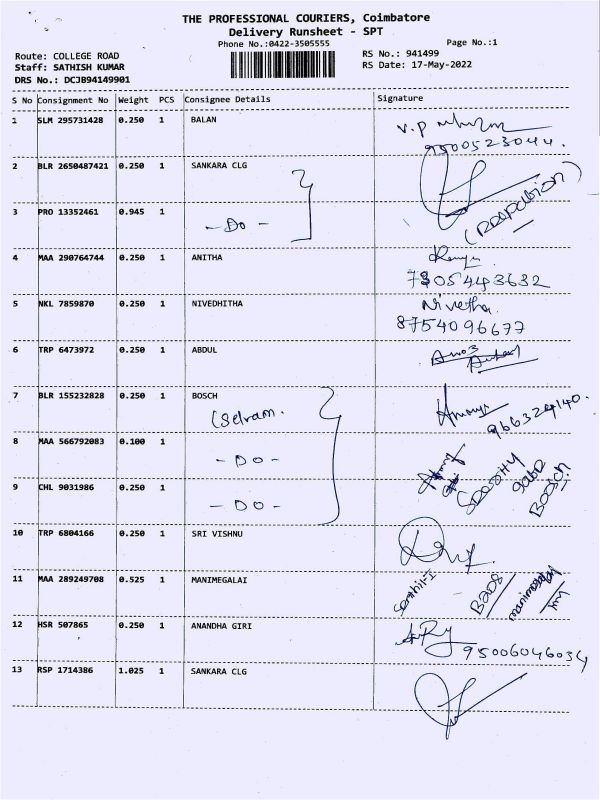 THE PROFESSIONAL COURIERS, Coimbatore
Delivery Runsheet - SPT
Phone No.:0422-3505555
Page No.:1
Route: COLLEGE ROAD
RS No.: 941499
Staff: SATHISH KUMAR
RS Date: 17-May-2022
DRS No.: DCJB94149901
S No Consignment No Weight PCS Consignee Details Signature
1 SLM 295731428 0.250 1 BALAN
9000523044.
2 BLR 2650487421 0.250 1 SANKARA CLG
3 PRO 13352461 0.945 1
- Do -
4 MAA 290764744 0.250 1 ANITHA
7305443632
5 NKL 7859870 0.250 1 NIVEDHITHA Nivetha
8754096677
6 TRP 6473972 0.250 1 ABDUL
7 BLR 155232828 0.250 1 BOSCH
(Selvam.
8 MAA 566792083 0.100 1
- DO -
9 CHL 9031986 0.250 1
- DO -
Bosch
10 TRP 6804166 0.250 1 SRI VISHNU
11 MAA 289249708 0.525 1 MANIMEGALAI
12 HSR 507865 0.250 1 ANANDHA GIRI
95006046034
13 RSP 1714386 1.025 1 SANKARA CLG